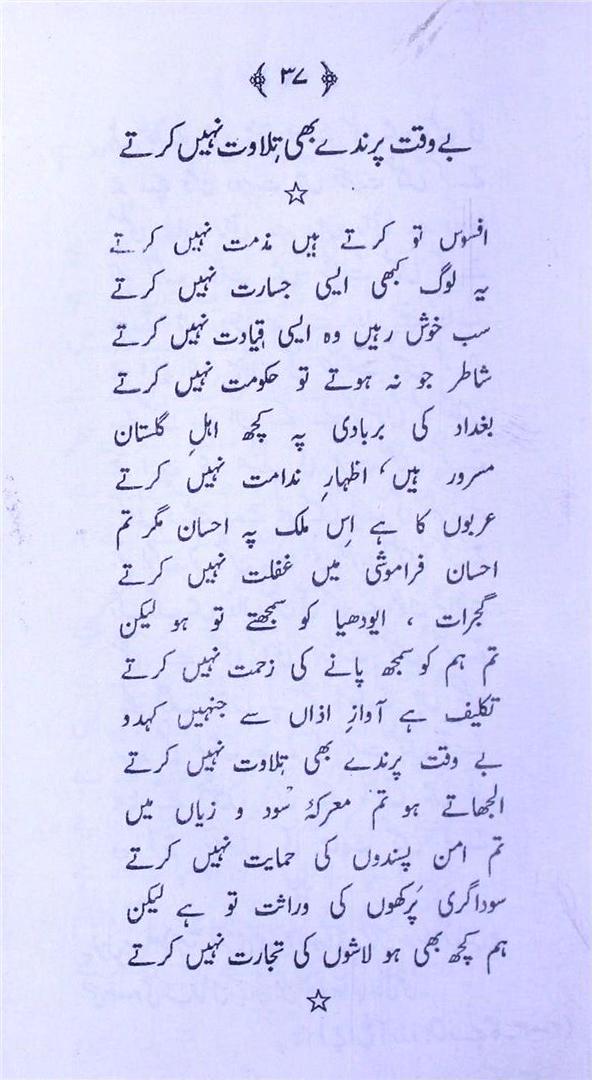 ۳۷
بے وقت پرندے بھی تِلاوت نہیں کرتے
افسوس تو کرتے ہیں مذمت نہیں کرتے
یہ لوگ کبھی ایسی جسارت نہیں کرتے
سب خوش رہیں وہ ایسی قیادت نہیں کرتے
شاطر جو نہ ہوتے تو حکومت نہیں کرتے
بغداد کی بربادی پہ کچھ اہلِ گلستان
مسرور ہیں، اظہارِ ندامت نہیں کرتے
عربوں کا ہے اِس ملک پہ احسان مگر تم
احسان فراموشی میں غفلت نہیں کرتے
گجرات ، ایودھیا کو سمجھتے تو ہو لیکن
تم ہم کو سمجھ پانے کی زحمت نہیں کرتے
تکلیف ہے آوازِ اذاں سے جنہیں کہدو
بے وقت پرندے بھی تِلاوت نہیں کرتے
الجھاتے ہو تم معرکۂ سُود و زیاں میں
تم امن پسندوں کی حمایت نہیں کرتے
سوداگری پُرکھوں کی وراثت تو ہے لیکن
ہم کچھ بھی ہو لاشوں کی تجارت نہیں کرتے